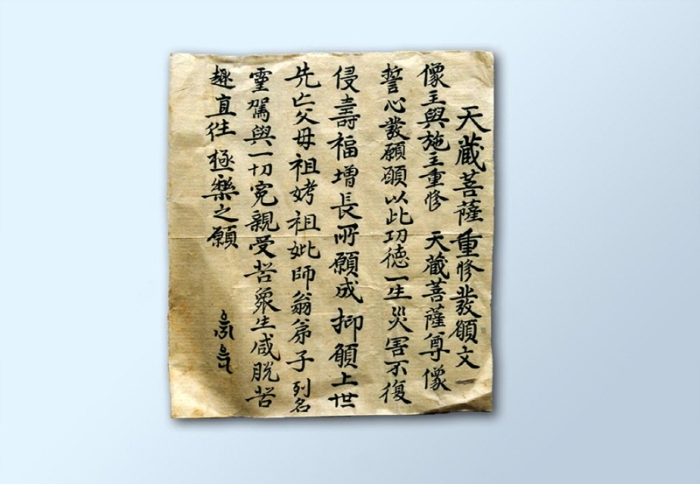 天藏菩薩重修發願文
像主與施主重修 天藏菩薩尊像
誓心發願願以此功德一生災害不復
侵壽福增長所願成 抑願上世
先亡父母祖祖妣師翁弟子列名
靈駕與一切寃親受苦衆生咸脫苦
趣直往 極樂之願